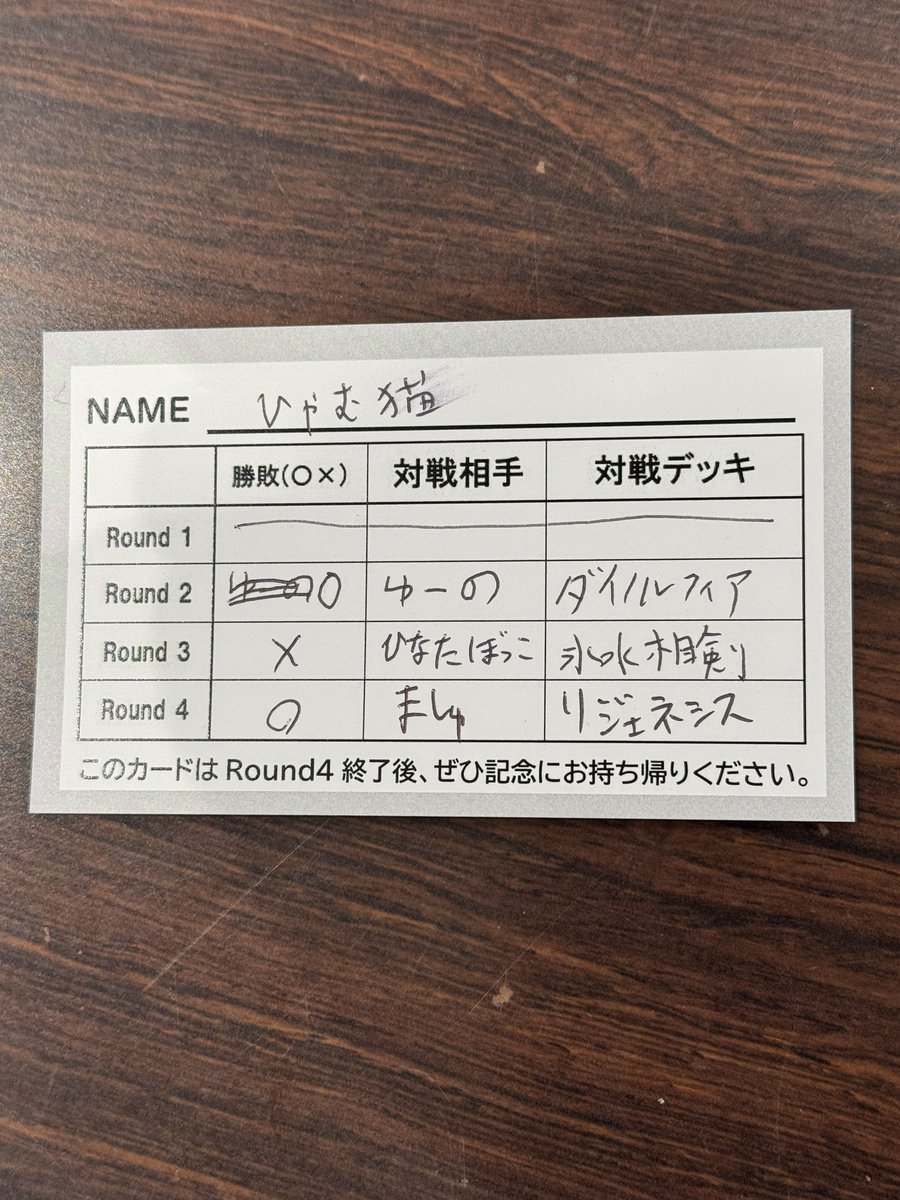 NAME ひゃむ猫
勝敗(○×) 対戦相手 対戦デッキ
Round 1
Round 2 ○ ゆーの ダイノルフィア
Round 3 × ひなたぼっこ 氷水相剣
Round 4 ○ ましゅ リジェネシス
このカードは Round4 終了後、ぜひ記念にお持ち帰りください。